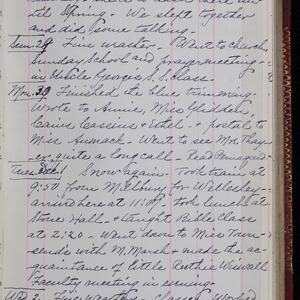 with Spring. We slept together
and did some talking.
Sun. 29 Fine weather. Went to Church,
Sunday School and prayer meeting -
in Uncle George's S.S. Class.
Mon. 30 Finished the blue trimming.
Wrote to Annie, Miss Glidden,
Cassius + Ethel - + postal to
Miss. Went to see Mrs. Thay-
er, quite a long call - Read
Tues. Dec. 1 Snow again - Took train at
9:50 from for Wellesley -
arrived here at 11:09. took lunch at
Stone Hall - + taught Bible Class
at 2:20 - Went down to Miss Town-
send's with M. Marsh + made the ac-
quaintance of little Ruthie Wiswall
Faculty meeting in evening.
Wed. 2